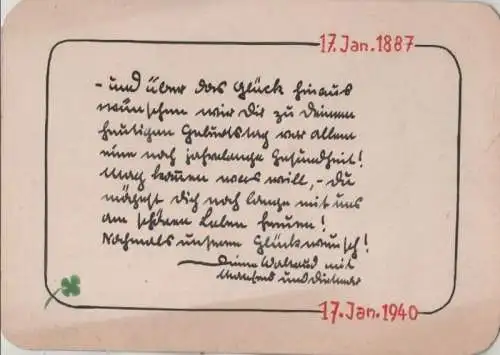 17. Jan. 1887
- und über das Glück hinaus
wünschen wir Dir zu Deinem
heutigen Geburtstag vor allem
eine noch jahrelange Gesundheit!
Mag kommen was will, - Du
mögest Dich noch lange mit uns
am schönen Leben freuen!
Nochmals unseren Glückwunsch!
Deine Waltraud mit
Manfred und Dietmar
17. Jan. 1940